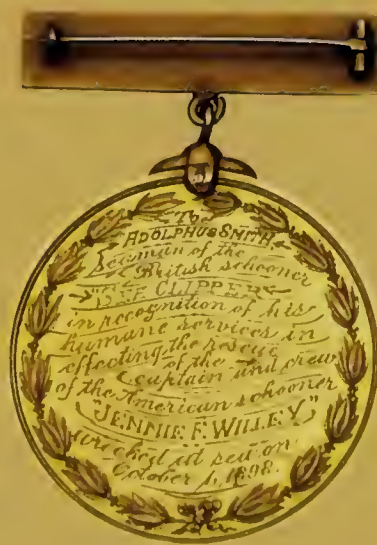 To
ADOLPHUS SMITH
Seaman of the
British schooner
CLIPPER
in recognition of his
humane services in
effecting the rescue
of the
captain and crew
of the American schooner
"JENNIE F. WILLEY"
wrecked at sea on
October 1, 1898.